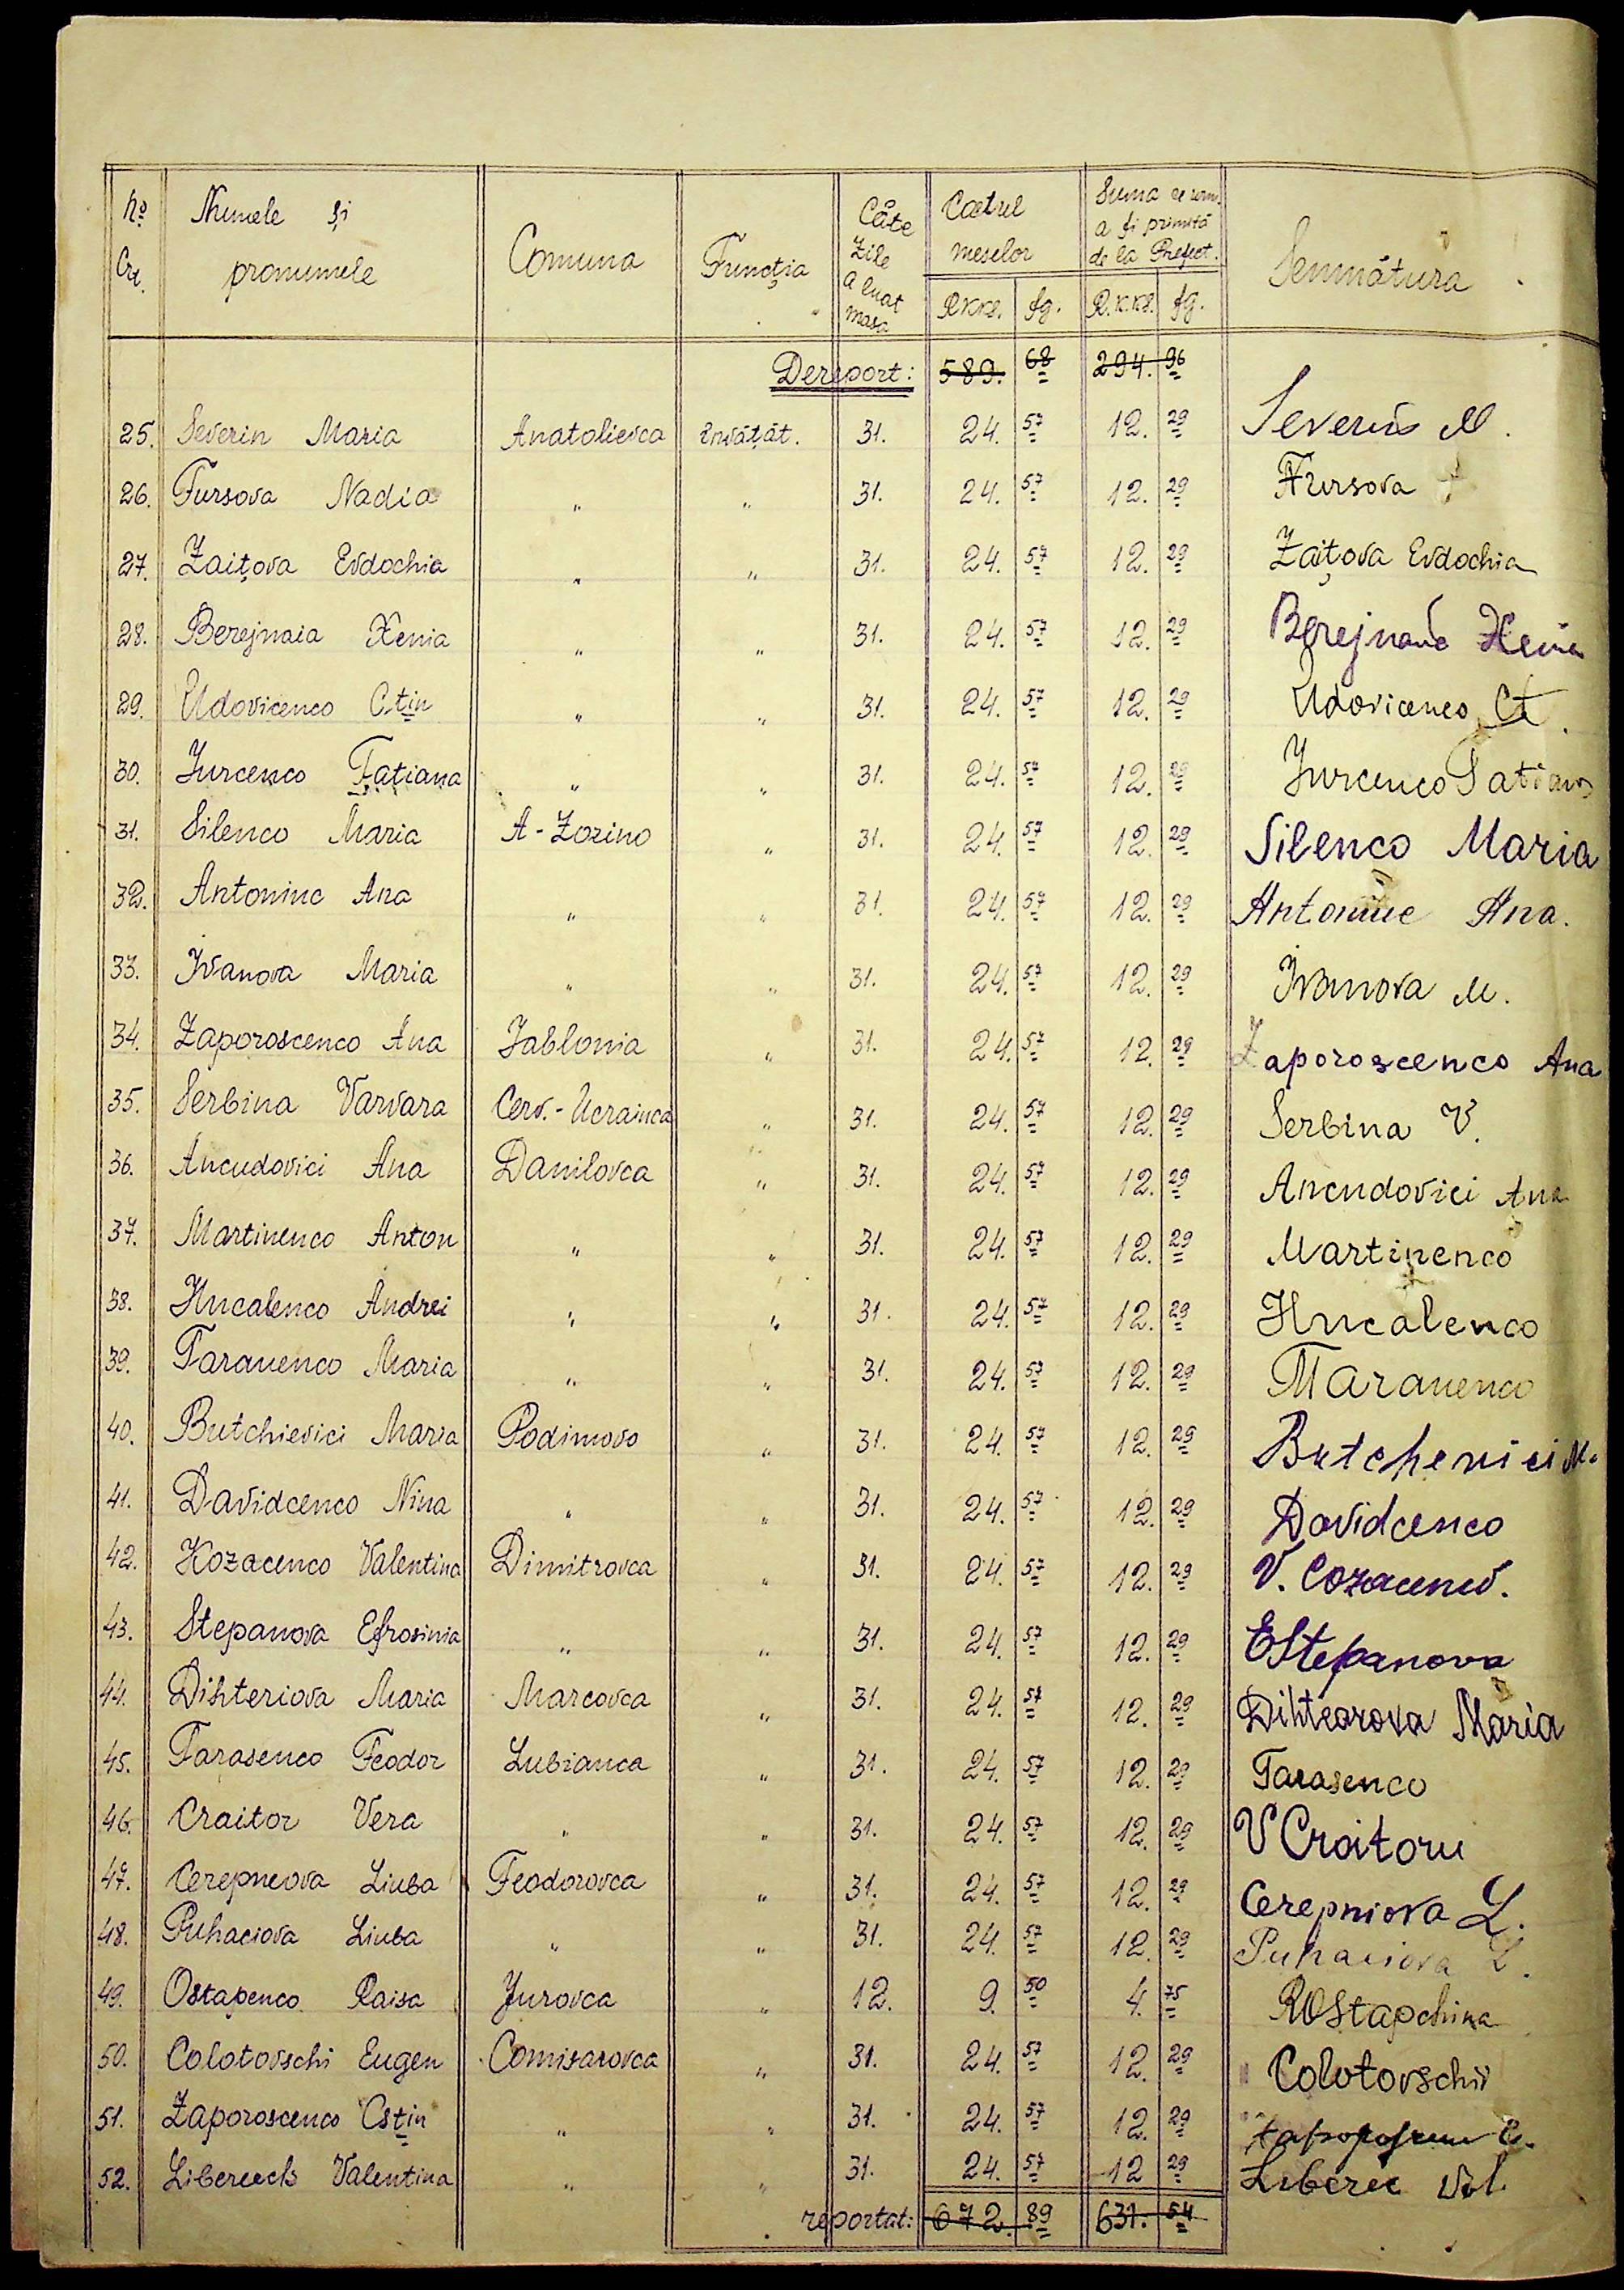 No Crt. Numele și pronumele Comuna Funcția Câte zile a luat masa Costul meselor Suma ce urm. a fi primită de la Prefect. Semnătura
RKKS. fg. R.K.KS. fg.
Dereport: 589. 68 294. 96
25. Severin Maria Anatolievca învățăt. 31. 24. 57 12. 29 Severin M.
26. Fursova Nadia " " 31. 24. 57 12. 29 Fursova
27. Zaițova Evdochia " " 31. 24. 57 12. 29 Zaițova Evdochia
28. Berejnaia Xenia " " 31. 24. 57 12. 29 Berejnaia Xenia
29. Udovicenco C-tin " " 31. 24. 57 12. 29 Udovicenco Ct.
30. Jurcenco Tatiana " " 31. 24. 57 12. 29 Jurcenco Tatiana
31. Silenco Maria A-Zorino " 31. 24. 57 12. 29 Silenco Maria
32. Antoninc Ana " " 31. 24. 57 12. 29 Antoninc Ana.
33. Ivanova Maria " " 31. 24. 57 12. 29 Ivanova M.
34. Zaporoscenco Ana Jablonia " 31. 24. 57 12. 29 Zaporoscenco Ana
35. Serbina Varvara Cerv.-Ucrainca " 31. 24. 57 12. 29 Serbina V.
36. Ancudovici Ana Danilovca " 31. 24. 57 12. 29 Ancudovici Ana
37. Martinenco Anton " " 31. 24. 57 12. 29 Martinenco
38. Hucalenco Andrei " " 31. 24. 57 12. 29 Hucalenco
39. Taranenco Maria " " 31. 24. 57 12. 29 MTaranenco
40. Butchievici Maria Podimovo " 31. 24. 57 12. 29 Butchevici M.
41. Davidcenco Nina " " 31. 24. 57 12. 29 Davidcenco
42. Kozacenco Valentina Dimitrovca " 31. 24. 57 12. 29 V. Cozacenco.
43. Stepanova Efrosinia " " 31. 24. 57 12. 29 EStepanova
44. Dihteriova Maria Marcovca " 31. 24. 57 12. 29 Dihtearova Maria
45. Tarasenco Feodor Lubianca " 31. 24. 57 12. 29 Tarasenco
46. Craitor Vera " " 31. 24. 57 12. 29 V Croitoru
47. Cerepneova Liuba Feodorovca " 31. 24. 57 12. 29 Cerepniova L.
48. Puhaciova Liuba " " 31. 24. 57 12. 29 Puhaciova L.
49. Ostapenco Raisa Jurovca " 12. 9. 50 4. 75 ROstapchina
50. Colotovschi Eugen Comisarovca " 31. 24. 57 12. 29 Colotovschii
51. Zaporoscenco Cstin " " 31. 24. 57 12. 29
52. Libereech Valentina " " 31. 24. 57 12 29 Liberec Val.
reportat: 672. 89 631. 54